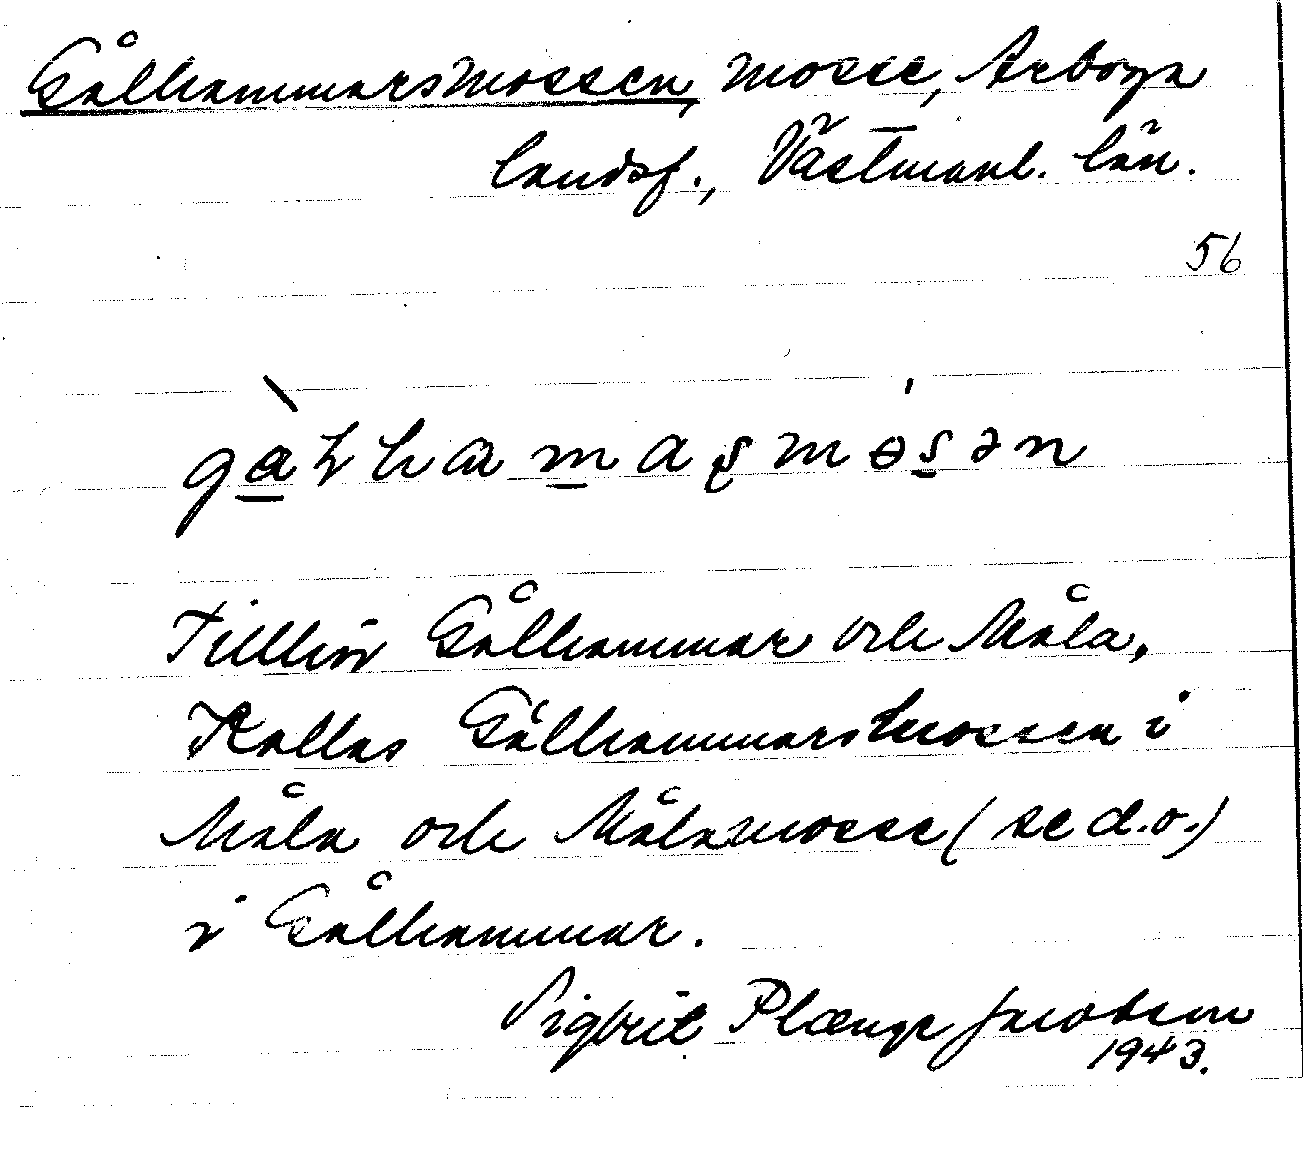 Gålhammarsmossen, mosse, Arboga
landsf., Västmanl. län.
56
Tillhör Gålhammar och Måla.
Kallas Gålhammarsmossen i
Måla och Målamosse (se d.o.)
i Gålhammar.
Sigbrit Plænge Jacobson
1943.